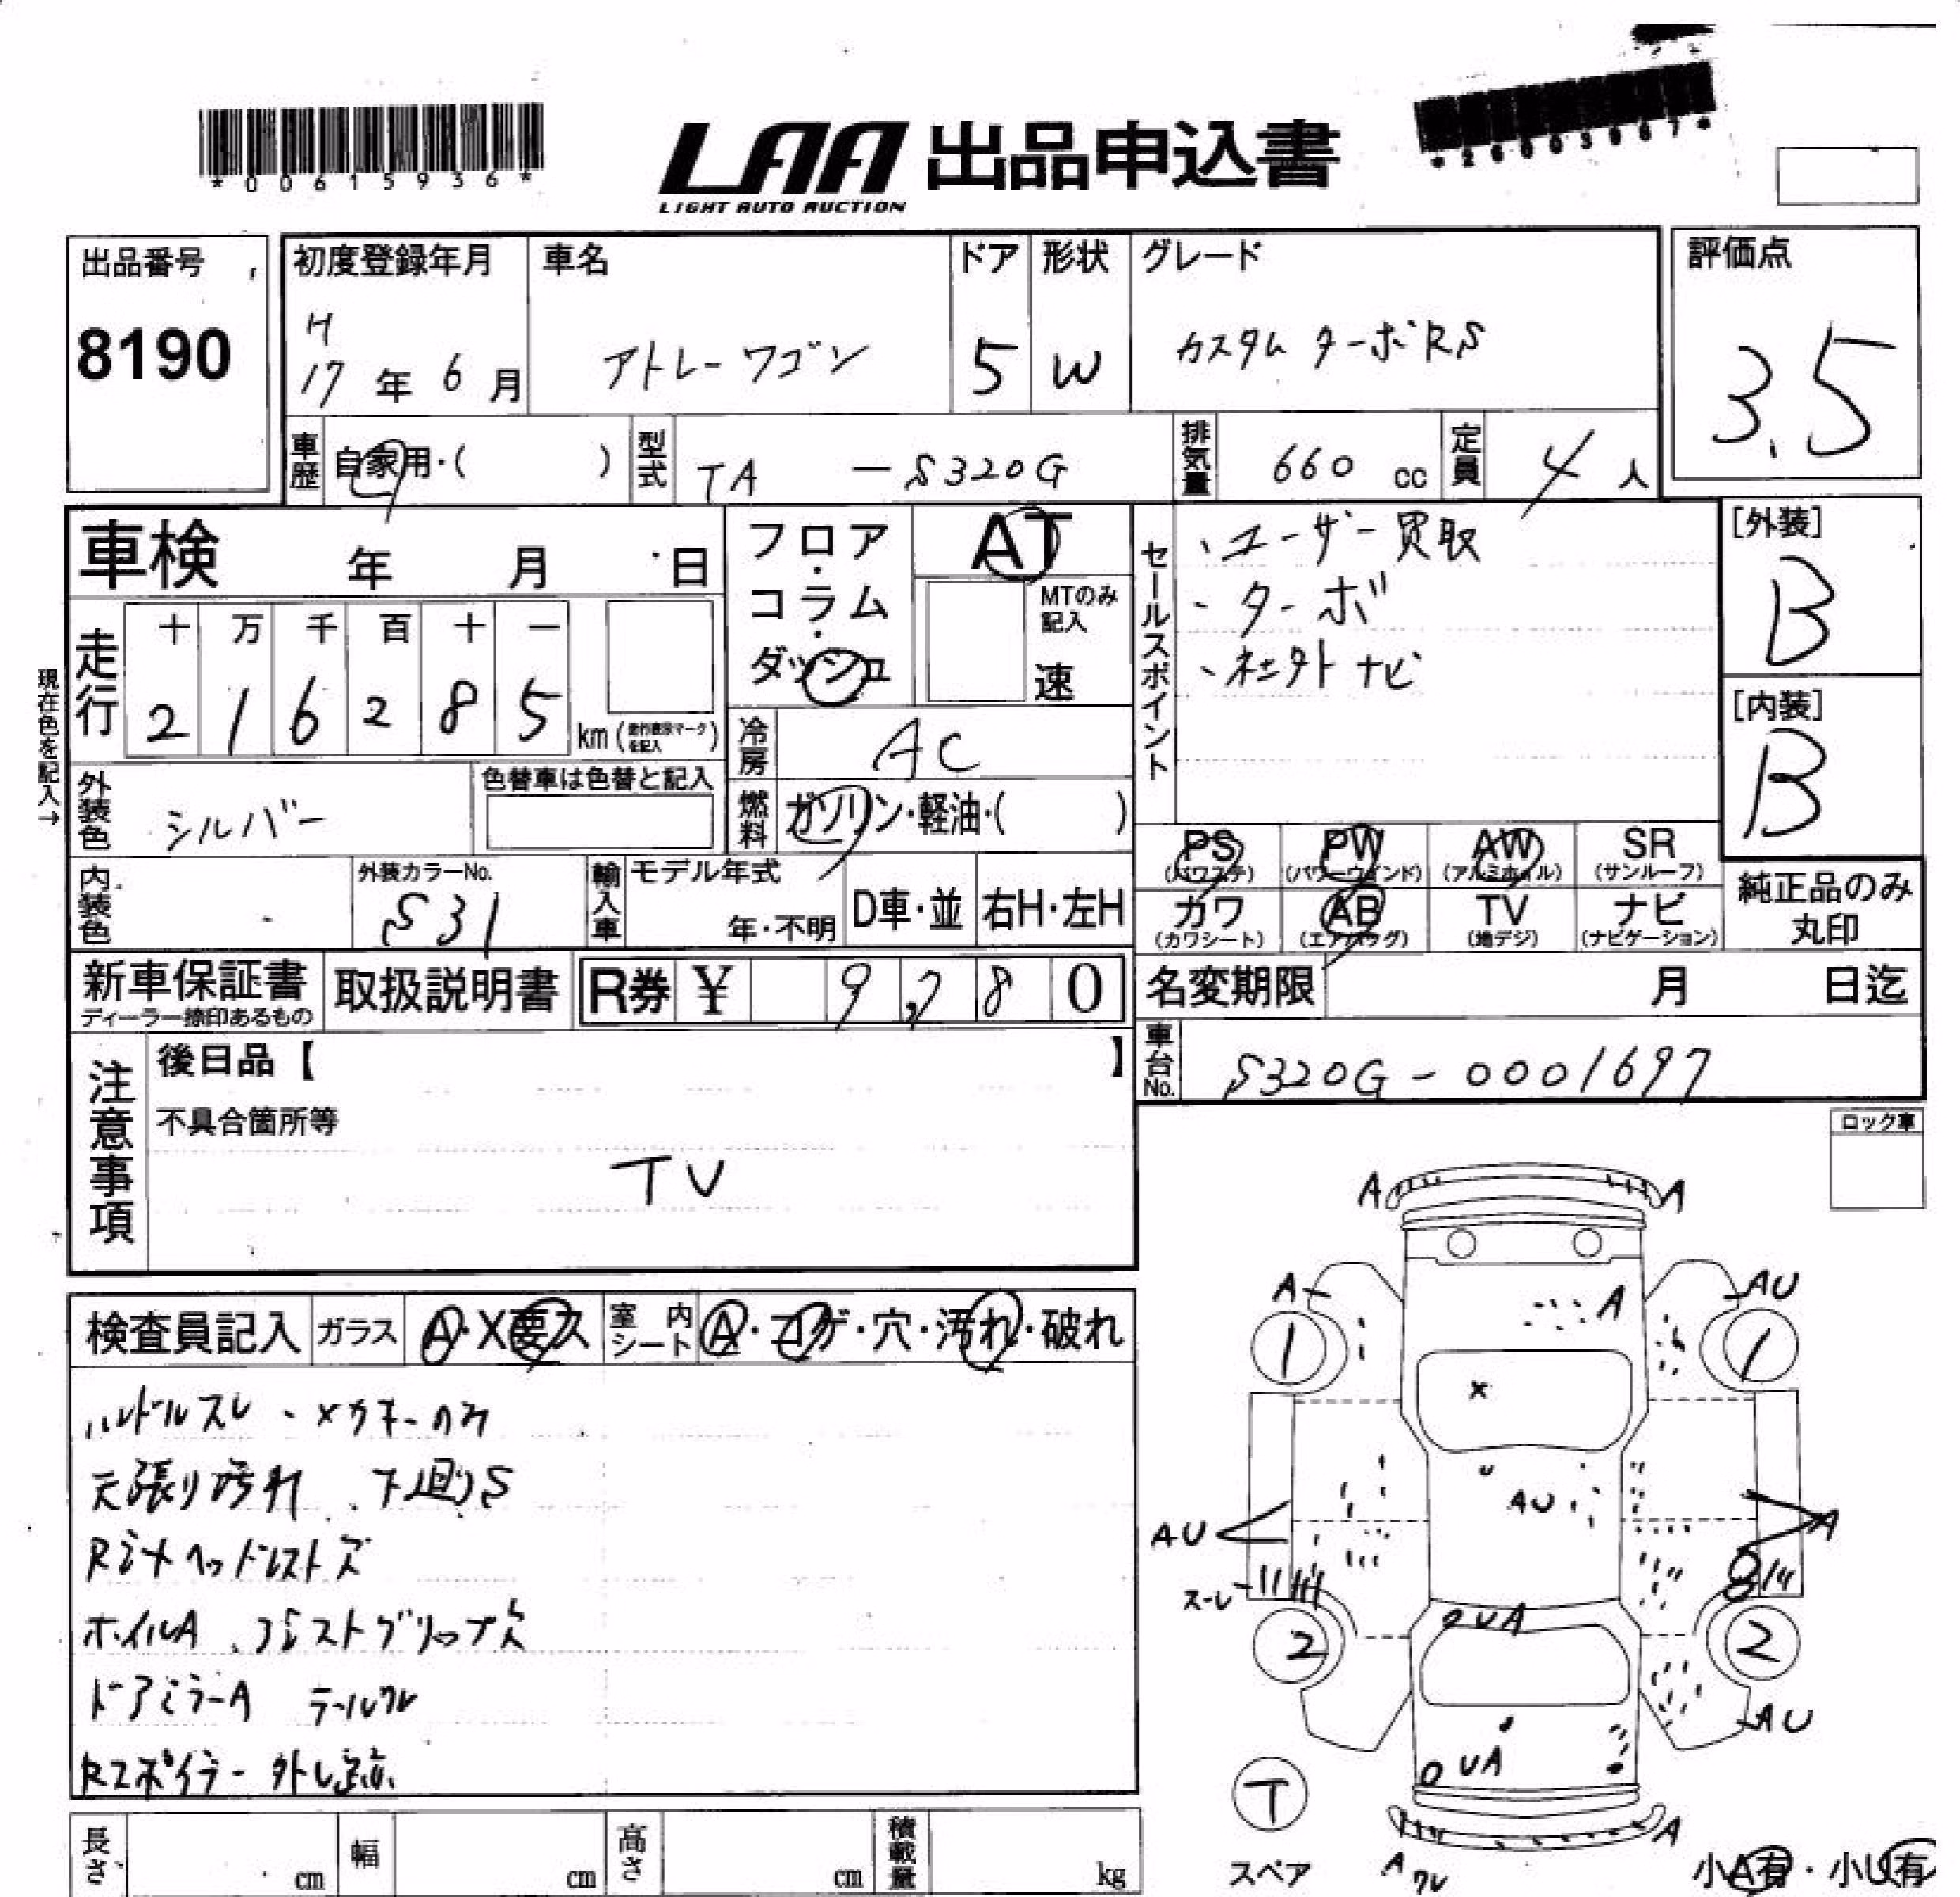 *00615936*
LAA 出品申込書
LIGHT AUTO AUCTION
出品番号
8190
初度登録年月
H
17 年 6 月
車名
アトレーワゴン
ドア
5
形状
W
グレード
カスタム ターボRS
評価点
3.5
車歴
自家用・( )
型式
TA -S320G
排気量
660 cc
定員
4 人
車検 年 月 日
フロア・コラム・ダッシュ
AT
MTのみ記入
速
セールスポイント
・ユーザー買取
・ターボ
・社外ナビ
[外装]
B
[内装]
B
現在色を記入→
走行
十 万 千 百 十 一
2 1 6 2 8 5
km (走行表示マークを記入)
冷房
AC
外装色
シルバー
色替車は色替と記入
燃料
ガソリン・軽油・( )
PS
(パワステ)
PW
(パワーウインド)
AW
(アルミホイル)
SR
(サンルーフ)
内装色
外装カラーNo.
S31
輸入車
モデル年式
年・不明
D車・並
右H・左H
カワ
(カワシート)
AB
(エアバッグ)
TV
(地デジ)
ナビ
(ナビゲーション)
純正品のみ
丸印
新車保証書
ディーラー捺印あるもの
取扱説明書
R券 ¥ 9,780
名変期限 月 日迄
車台No.
S320G-0001697
注意事項
後日品【 】
不具合箇所等
TV
ロック車
検査員記入
ガラス
A・X要ス
室内シート
A・コゲ・穴・汚れ・破れ
ハンドルスレ・メカキーのみ
天張り汚れ、下廻りS
ホイルA
ドアミラーA テールワレ
Rスポイラー外し
A
A
A
AU
1
1
A
X
U
AU
AU
A
スレ
2
2
UA
AU
UA
T
スペア
A
Aワレ
小A有・小U有
長さ cm
幅 cm
高さ cm
積載量 kg